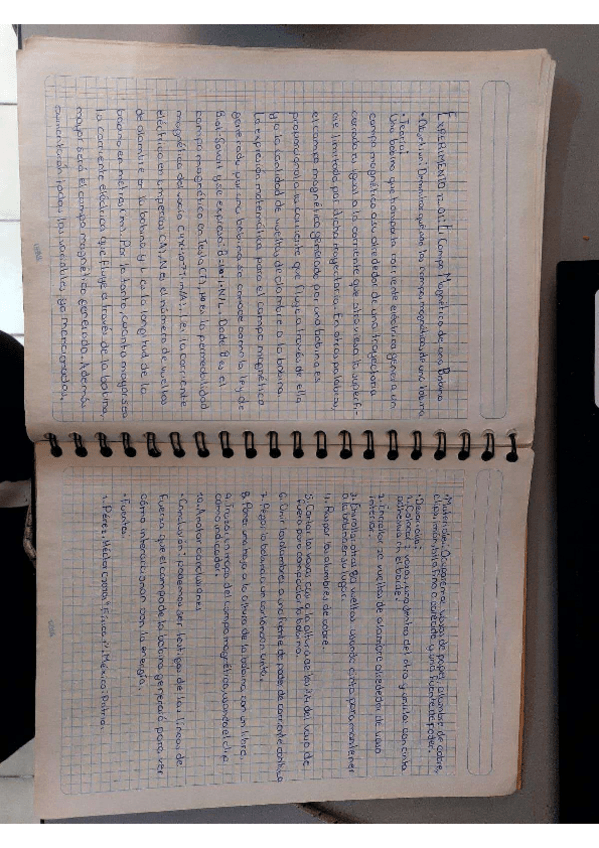 EXPERIMENTO Campo Magnético de una Bobina
•Objetivo: Demostrar los campos magnéticos de una bobina
•Teoría:
Una bobina que transporta corriente eléctrica genera un
campo magnético a su alrededor de una trayectoria
cerrada es igual a la corriente que atraviesa la superfi-
cie limitada por dicha trayectoria. En otras palabras,
el campo magnético generado por una bobina es
proporcional a la corriente que fluye a través de ella
y a la cantidad de vueltas de alambre a la bobina.
La expresión matemática para el campo magnético
generado por una bobina se conoce como la ley de
Biot-Savart y se expresa: Donde B es el
campo magnético en Tesla (T), es la permeabilidad
magnética del vacío I es la corriente
eléctrica en amperios (A), N es el número de vueltas
de alambre en la bobina y L es la longitud de la
bobina en metros (m). Por lo tanto, cuanto mayor sea
la corriente eléctrica que fluye a través de la bobina,
mayor será el campo magnético generado. Además
todas las variables, ya mencionadas,
Materiales: Ocuparemos vasos de papel, alambre de cobre,
clip, imán, hilo fino o conectado a una fuente de poder.
•Desarrollo:
1. Colocar 2 vasos, uno dentro del otro y unirlos con cinta
adhesiva en el borde.
2. Enrollar 20 vueltas de alambre alrededor de vaso
interior.
3. Enrollar otras 20 vueltas usando cinta para mantener
a la bobina en su lugar.
4. Raspar los alambres de cobre.
5. Cortar los vasos casi a la altura de los 3/4 del vaso de
fuera para complementar la bobina.
6. Unir los alambres a una fuente de poder de corriente continua
7. Pegar la bobina a un cartón con cinta.
8. Poner una hoja a la altura de la bobina, con un libro.
9. Trazar un mapa del campo magnético, usando el clip
como indicador.
10. Anotar conclusiones
•Conclusión: podemos ser testigos de las líneas de
fuerza que el campo de la bobina generó para ver
cómo interaccionan con la energía.
•Fuente:
1. Pérez, Héctor "Física 1", México: Patria.